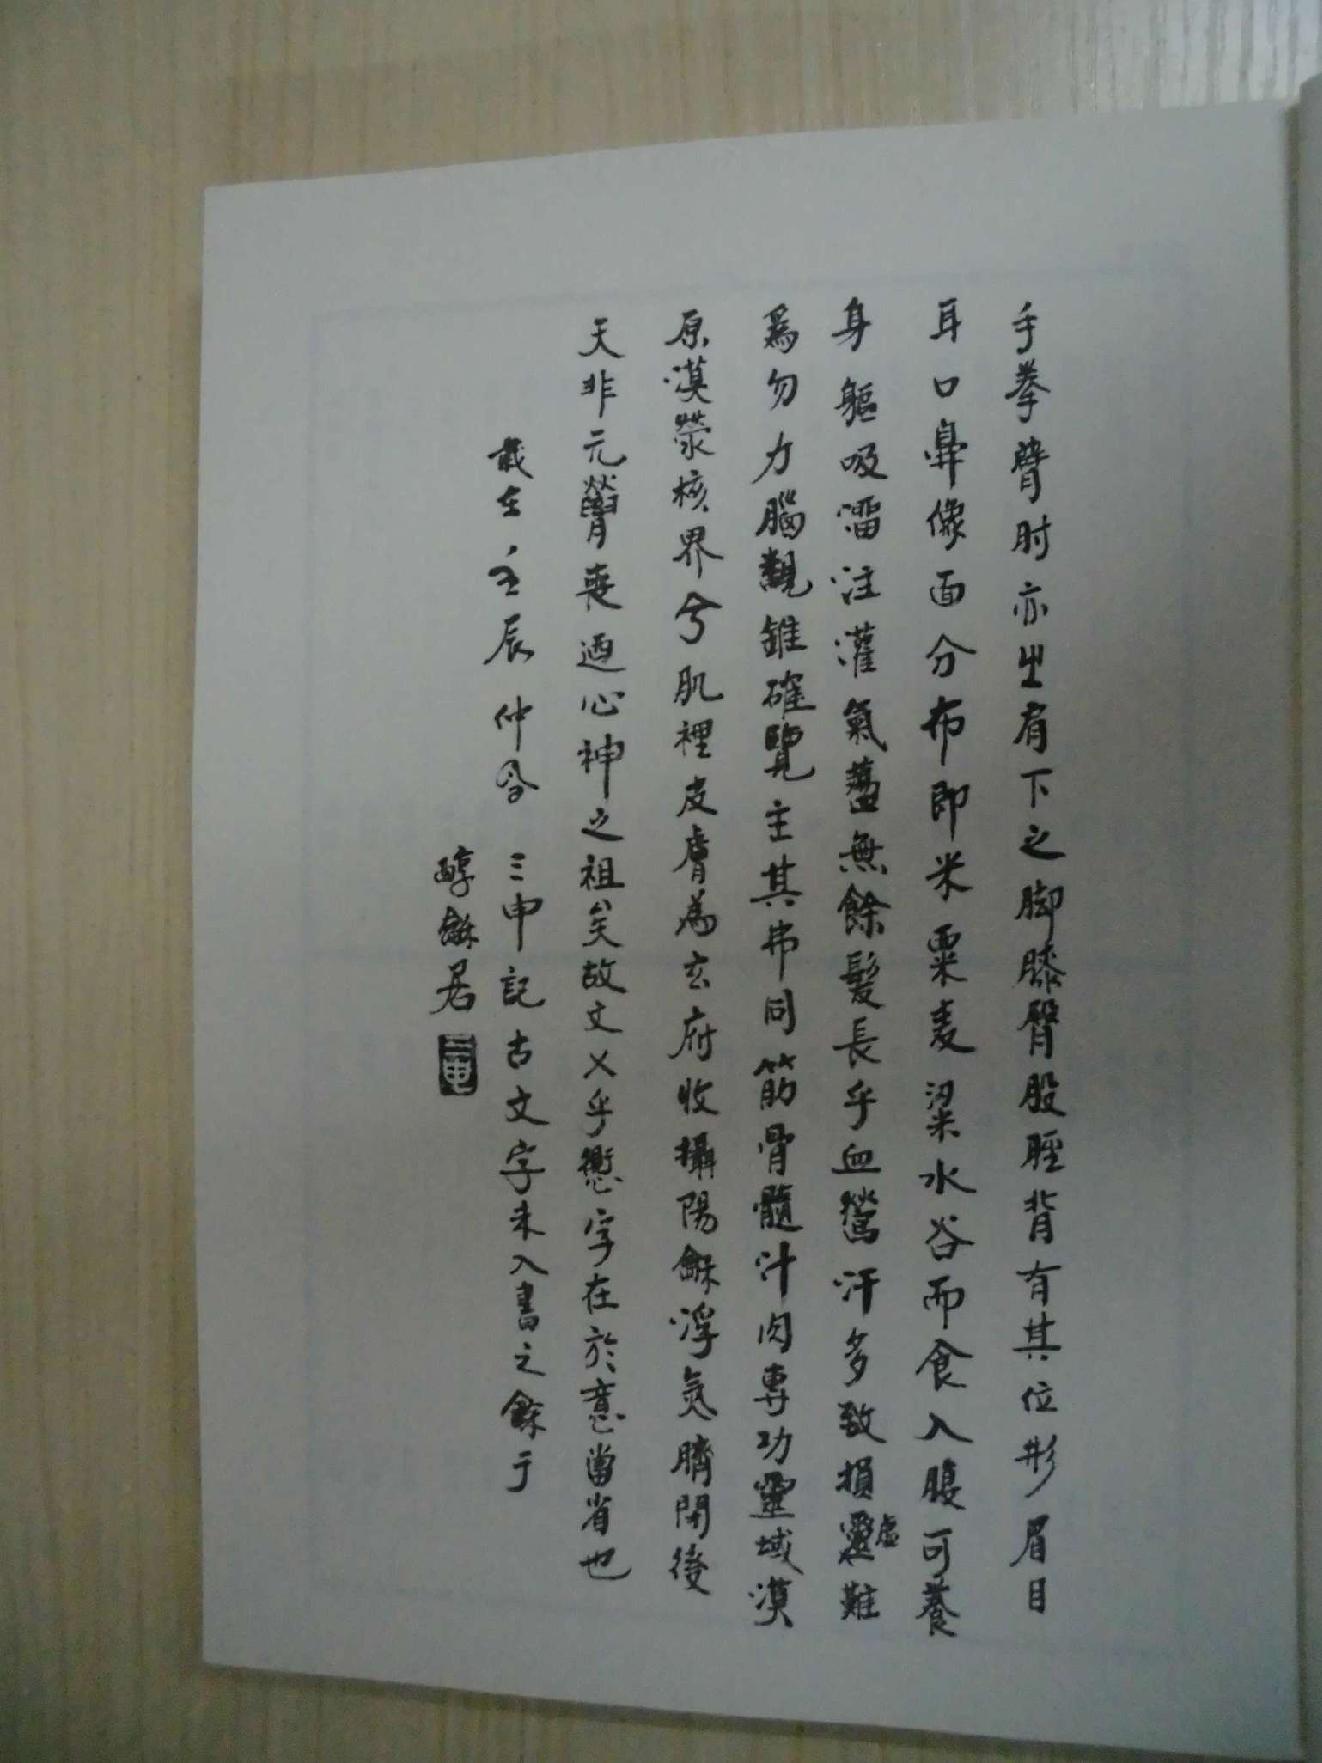 手拳臂肘亦出肩下之脚膝臀股脛背有其位形眉目
耳口鼻像面分布即米粟麦粱水谷而食入腹可養
身軀吸溜注灌氣蘯無餘髮長乎血鶯汗多致損靈虛難
爲勿力腦觀錐確覽主其弗同筋骨髓汁肉專功靈域漠
原漠滎核界兮肌裡皮膚為玄府收攝陽龢浮炁臍閉後
天非元膏喪迺心神之祖矣故文乂乎字在於意當省也
歲在壬辰仲 三申記古文字未入書之餘于
醇龢居
三申